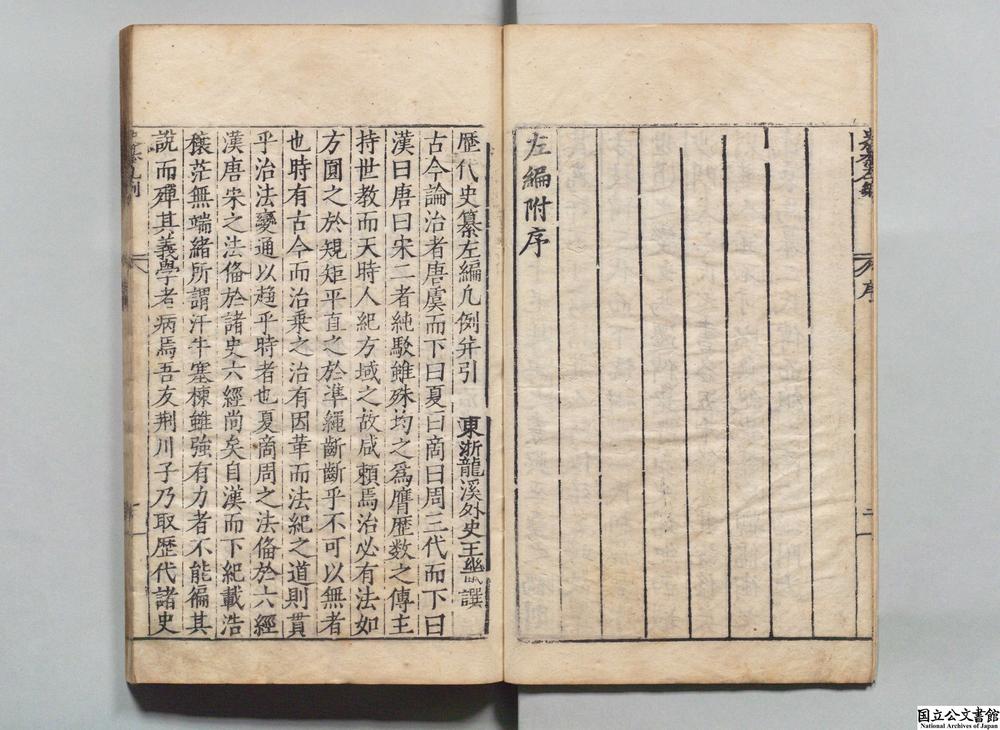 左編附序
歷代史纂左編凡例并引 東浙龍溪外史王畿撰
古今論治者唐虞而下曰夏曰商曰周三代而下曰
漢曰唐曰宋二者純駁雖殊均之爲膺歷数之傳主
持世教而天時人紀方域之故咸頼焉治必有法如
方圓之於規矩平直之於準繩斷斷乎不可以無者
也時有古今而治乗之治有因革而法紀之道則貫
乎治法變通以趨乎時者也夏商周之法俻於六經
漢唐宋之法俻於諸史六經尚矣自漢而下紀載浩
穰茫無端緒所謂汗牛塞棟雖強有力者不能徧其
說而殫其義學者病焉吾友荆川子乃取歷代諸史
序
国立公文書館
National Archives of Japan